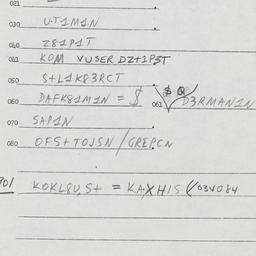 021
030 UT1M1N
040 Z81P1T
041 KOM VUSER DZ+1P3T
050 S+L1K83RCT
060 DAFK81M1N = $ 061 $ Q D3RMAN1N
070 SAP1N
080 OFS+TOJSN/GREPCN
901 KOKL8U,S+ = KA,XH1S (/034084